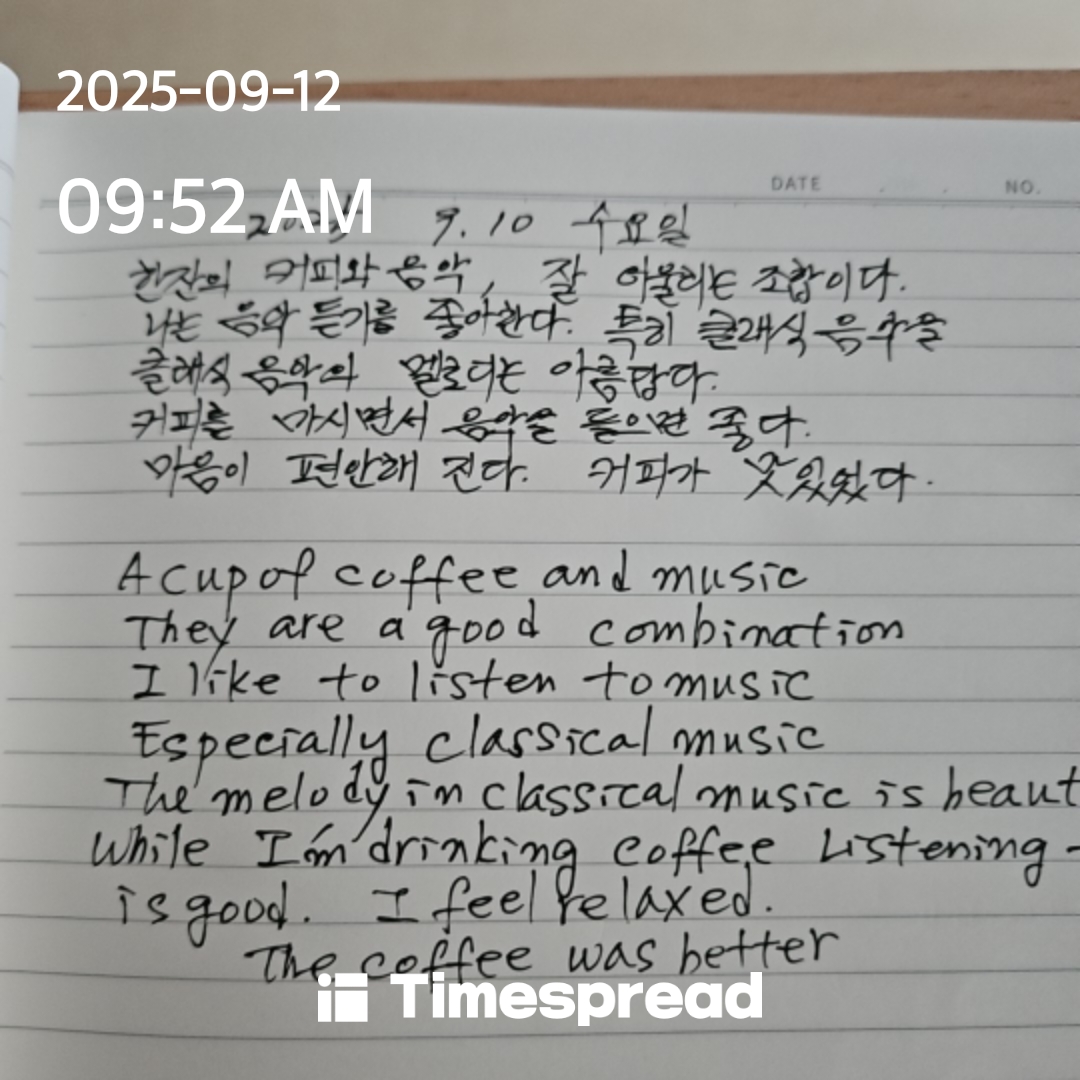 2025-09-12
DATE NO.
09:52 AM
9.10 수요일
한잔의 커피와 음악, 잘 어울리는 조합이다.
나는 음악 듣기를 좋아한다. 특히 클래식
클래식 음악의 멜로디는 아름답다.
커피를 마시면서 음악을 들으면 좋다.
마음이 편안해 진다. 커피가 맛있었다.
A cup of coffee and music
They are a good combination
I like to listen to music
Especially classical music
The melody in classical music is beaut
While I'm drinking coffee Listening
is good. I feel relaxed.
The coffee was better
Timespread